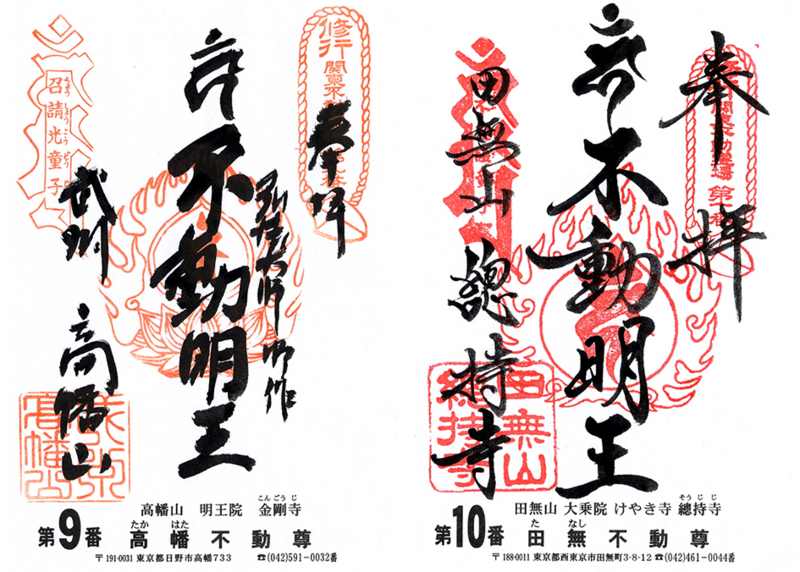 奉拝
弘法大師御作
不動明王
武州
高幡山
修行
関東
召請光童子
しょうこうどうじ
高幡山 明王院 金剛寺
こんごうじ
第9番 高幡不動尊
たか はた
〒191-0031 東京都日野市高幡733 ☎(042)591-0032番
奉拝
不動明王
田無山 總持寺
田無山
總持寺
田無山 大乗院 けやき寺 總持寺
そうじじ
第10番 田無不動尊
た なし
〒188-0011 東京都西東京市田無町3-8-12 ☎(042)461-0044番